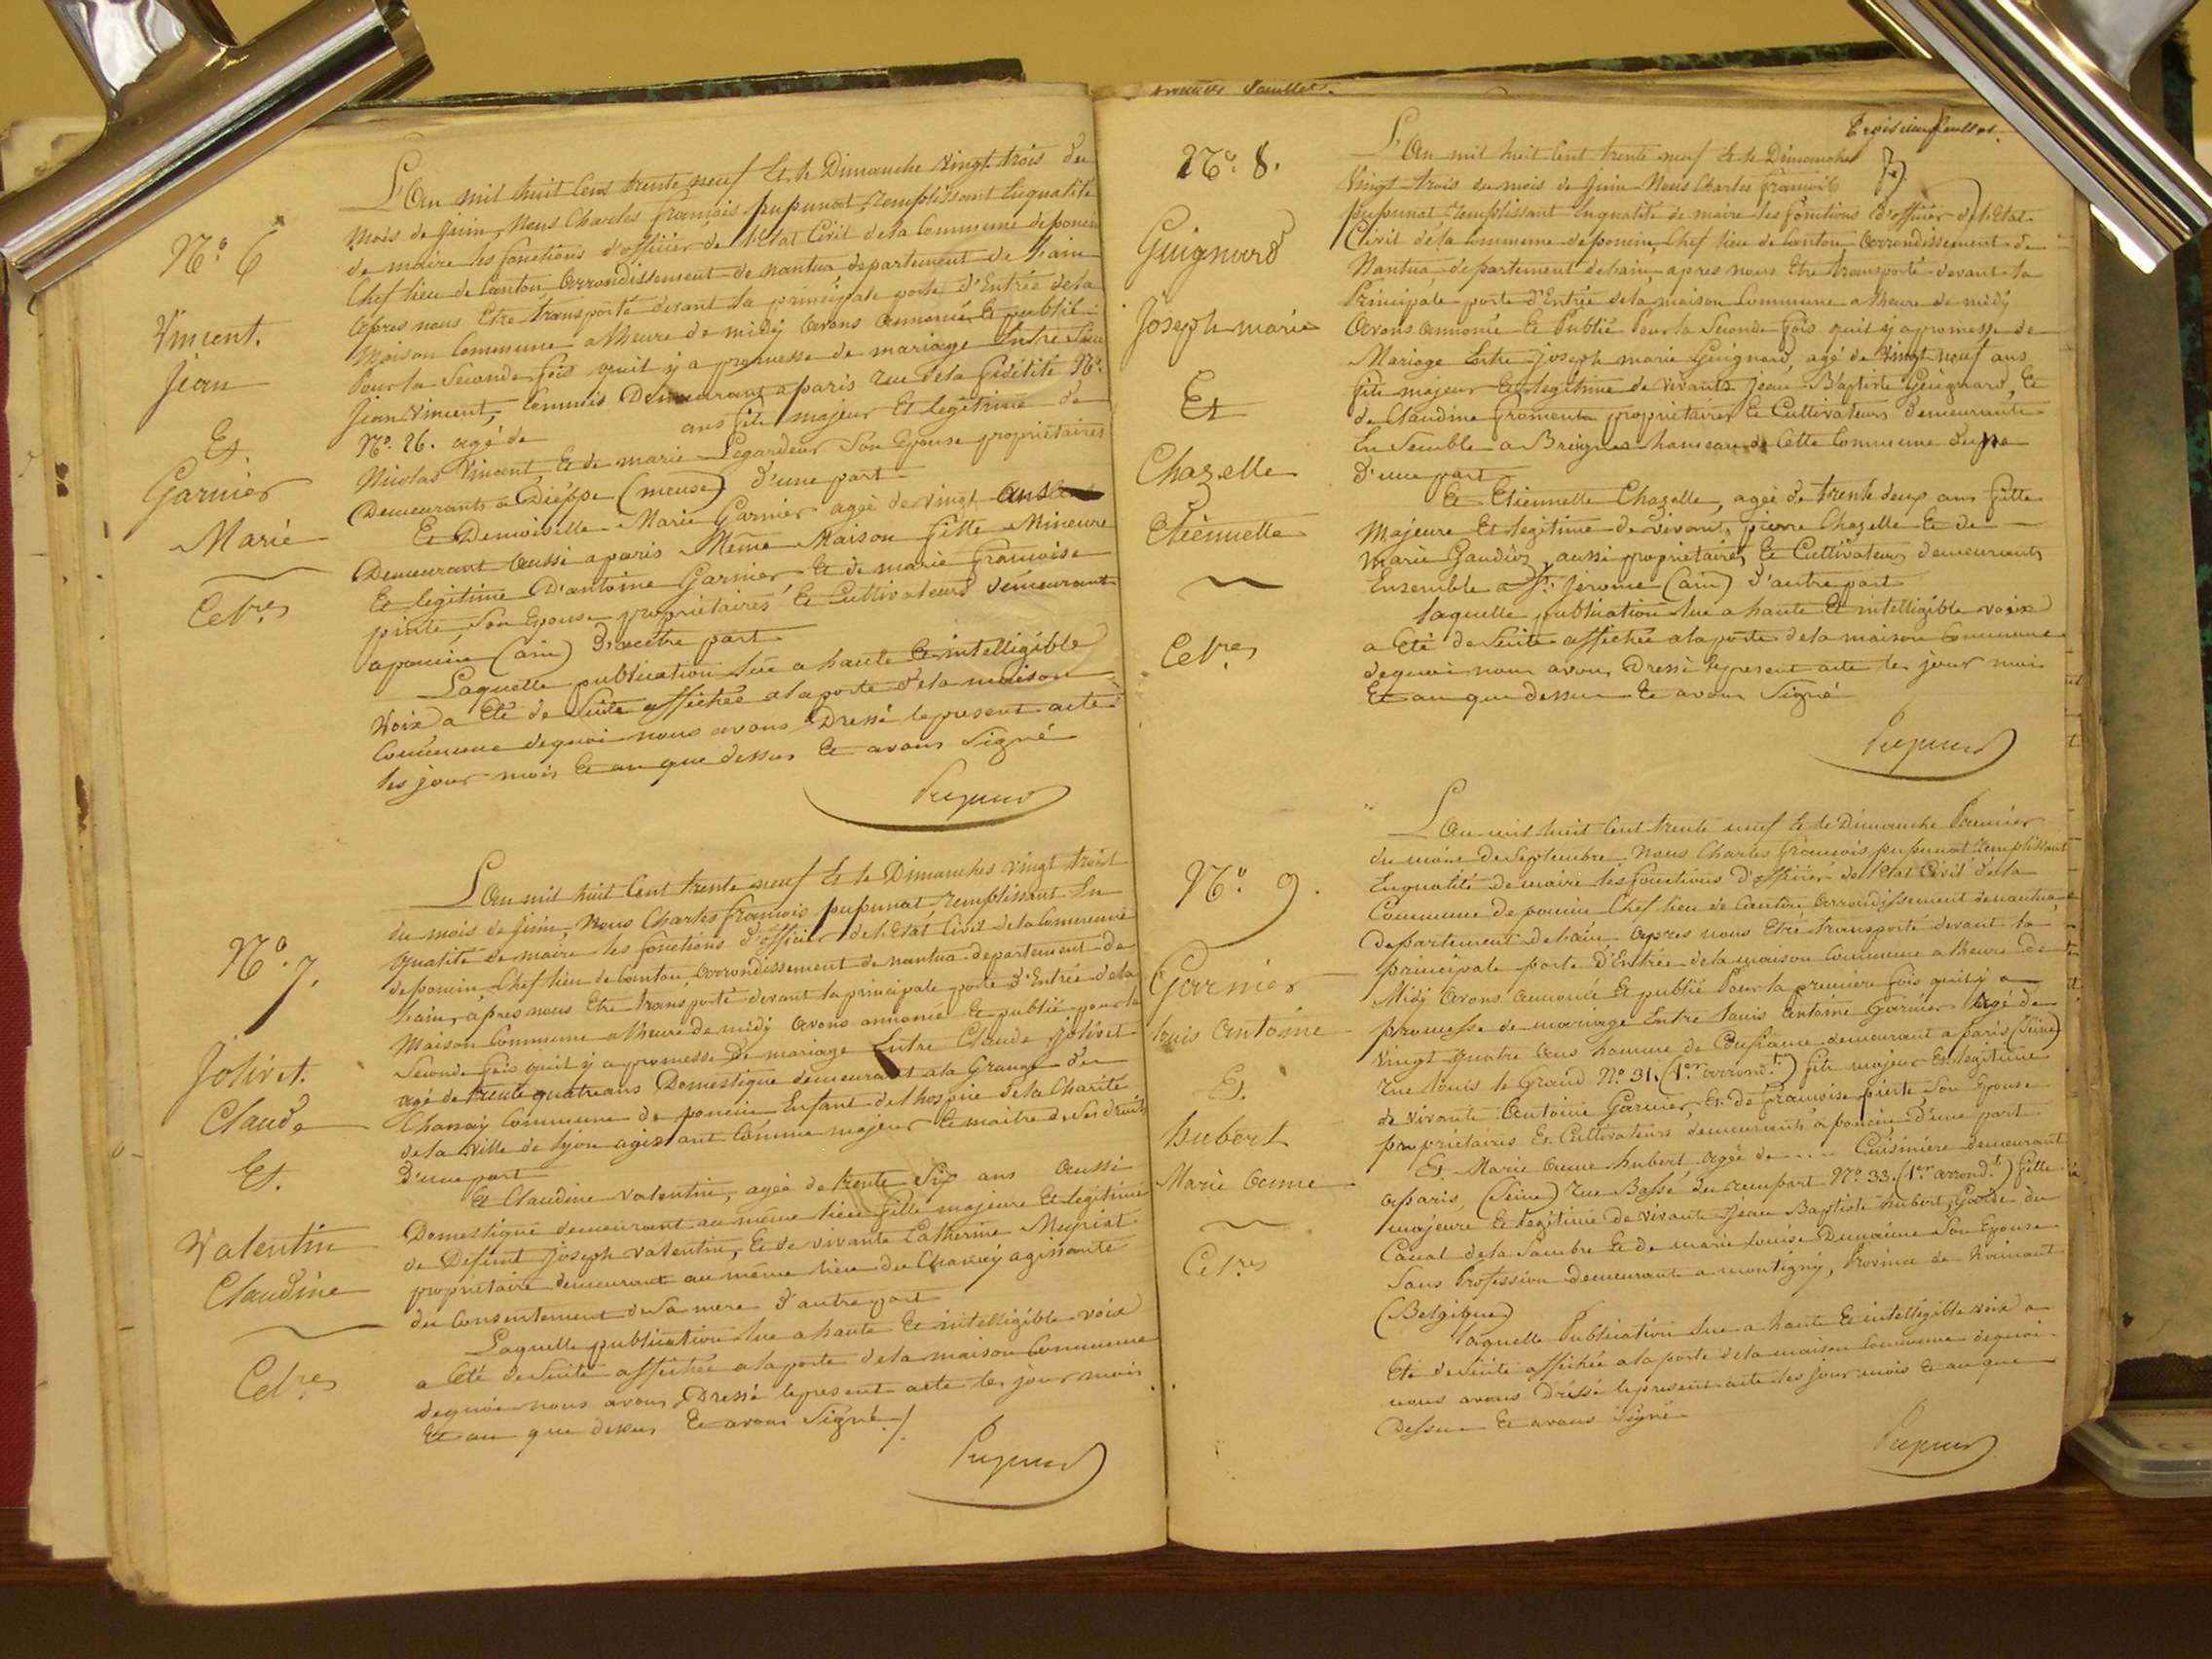 N.o 6
Vincent.
Jean
Et
Garnier
Marie
Cel.res
L'an mil huit Cent trente neuf Et le Dimanche vingt trois du
mois de juin, Nous Charles françois pupunat, remplissant Enqualité
de maire les fonctions d'officier de l'Etat Civil dela Commune deponcin
Chef lieu de Canton arrondissement de nantua departement de l'ain
apres nous Etre transporté devant la principale porte d'Entrée dela
maison Commune alheure de midy avons annoncé Et publié
Pour la Seconde fois quil y a promesse de mariage Entre
Jean Vincent, Commis Demeurant aparis rue dela fidélité N.o
N.o 26. agé de ans fils majeur Et legitime de
Nicolas Vincent, Et de marie Legardeur Son Epouse propriétaires
Demeurants a Dieppe (meuse) d'une part
Et Demoiselle Marie Garnier agée de vingt ans
Demeurant aussi aparis Même Maison fille Mineure
Et legitime D'antoine Garnier Et de marie françoise
pinte Son Epouse propriétaires Et Cultivateurs demeurant
aponcin (ain) D'autre part
Laquelle publication lue a haute Et intelligible
Voix a Eté de Suite affichée alaporte dela maison
Commune dequoi nous avons Dressé lepresent acte
les jour mois Et an que dessus Et avons Signé
N.o 7.
Jolivet.
Claude
Et.
Valentin
Claudine
Cel.res
L'an mil huit Cent trente neuf Et le Dimanches vingt trois
du mois de juin, Nous Charles françois pupunat remplissant En
qualité de maire les fonctions d'officier de l'Etat Civil dela Commune
deponcin Chef lieu de Canton, arrondissement de nantua departement de
l'ain, apres nous Etre transporté devant la principale porte d'Entrée dela
Maison Commune alheure de midy avons annoncé Et publié pour la
Seconde fois quil y a promesse de mariage Entre Claude Jolivet
agé de trente quatre ans Domestique demeurant ala Grange du
Chanay Commune de poncin Enfant delhospice dela Charité
dela Ville de lyon agissant Comme majeur Et maitre de Ses droits
d'une part
Et Claudine Valentin, agée de trente Six ans aussi
Domestique demeurant au même lieu fille majeure Et legitime
de Defunt Joseph Valentin, Et de vivante Catherine Meyriat
propriétaire demeurant au même lieu du Chanay agissante
du Consentement de Sa mere d'autre part
Laquelle publication lue a haute Et intelligible voix
a Eté de Suite affichée alaporte dela maison Commune
dequoi nous avons Dressé lepresent acte les jour mois
Et an que dessus Et avons Signé ./.
Troisieme feuillet
N.o 8.
Guignard
Joseph marie
Et
Chazelle
Etiennette
Cel.res
L'an mil huit Cent trente neuf Et le Dimanche
Vingt trois du mois de juin Nous Charles françois
pupunat remplissant Enqualité de maire les fonctions d'officier de l'Etat
Civil dela Commune deponcin, Chef lieu de Canton arrondissement de
Nantua departement delain, apres nous Etre transporté devant la
Principale porte d'Entrée dela maison Commune alheure de midy
avons annoncé Et Publié Pour la Seconde fois quil y a promesse de
Mariage Entre joseph marie Guignard, agé de vingt neuf ans
fils majeur Et legitime de vivants jean Baptiste Guignard, Et
de Claudine froment propriétaires Et Cultivateurs demeurants
En Semble a Breignes hameau de Cette Commune
d'une part
Et Etiennette Chazelle, agée de trente deux ans fille
Majeure Et legitime de vivants pierre Chazelle Et de
marie Gaudier, aussi propriétaires Et Cultivateurs demeurants
Ensemble a St. jerome (ain) d'autre part
laquelle publication lue a haute Et intelligible voix
a Eté de Suite affichée alaporte dela maison Commune
dequoi nous avons Dressé lepresent acte les jour mois
Et an que dessus Et avons Signé
N.o 9.
Garnier
louis antoine
Et.
hubert
Marie anne
Cel.res
L'an mil huit Cent trente neuf Et le Dimanche Premier
du mois de Septembre Nous Charles françois pupunat remplissant
Enqualité de maire les fonctions d'officier de l'Etat Civil dela
Commune deponcin Chef lieu de Canton arrondissement denantua
departement delain apres nous Etre transporté devant la
principale porte D'Entrée dela maison Commune alheure de
Midy avons annoncé Et publié Pour la premiere fois quil y a
promesse de mariage Entre louis antoine Garnier agé de
vingt quatre ans homme de Confiance demeurant a paris (Seine)
rue louis le Grand N.o 31. (1.er arrond.t) fils majeur Et legitime
de vivants antoine Garnier, Et de françoise pinte Son Epouse
propriétaires Et Cultivateurs demeurants a poncin d'une part
Et Marie anne hubert agée de .... Cuisiniere demeurant
aparis, (Seine) rue Basse du rempart N.o 33. (1.er arrond.t) fille
majeure Et legitime de vivants Jean Baptiste hubert, Garde du
Canal dela Sambre Et de marie louise Dumaine Son Epouse
Sans Profession demeurants a montigny, Province de hainaut
(Belgique)
laquelle Publication lue a haute Et intelligible voix a
Eté de Suite affichée alaporte dela maison Commune dequoi
nous avons Dréssé lepresent acte les jour mois Et an que
Dessus Et avons Signé